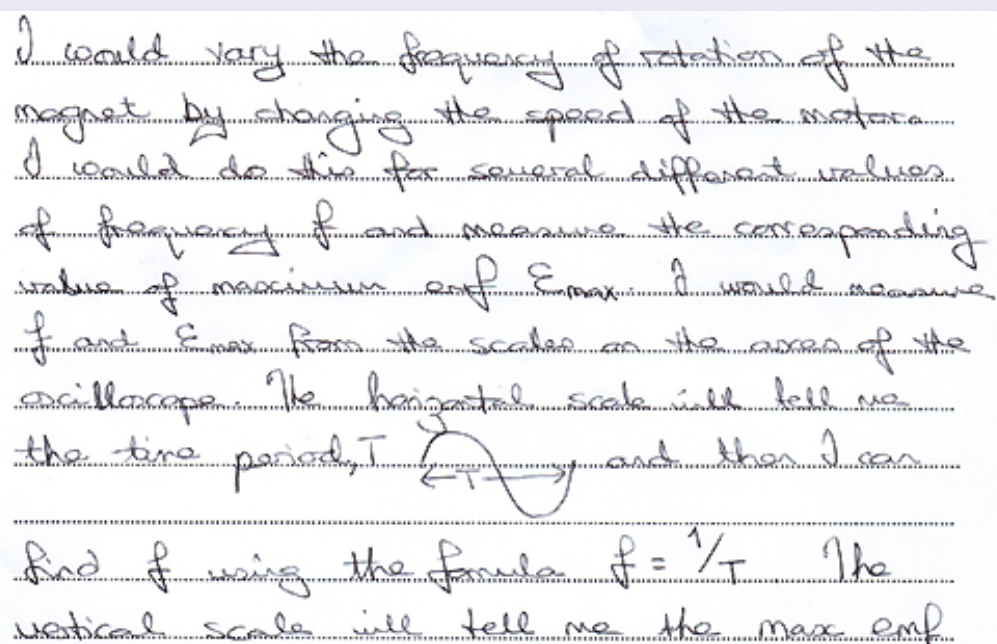 I would vary the frequency of rotation of the
magnet by changing the speed of the motor.
I would do this for several different values
of frequency f and measure the corresponding
value of maximum emf Emax. I would measure
f and Emax from the scales on the axes of the
oscilloscope. The horizontal scale will tell me
the time period, T ←T→ and then I can
find f using the formula f = 1/T. The
vertical scale will tell me the max emf